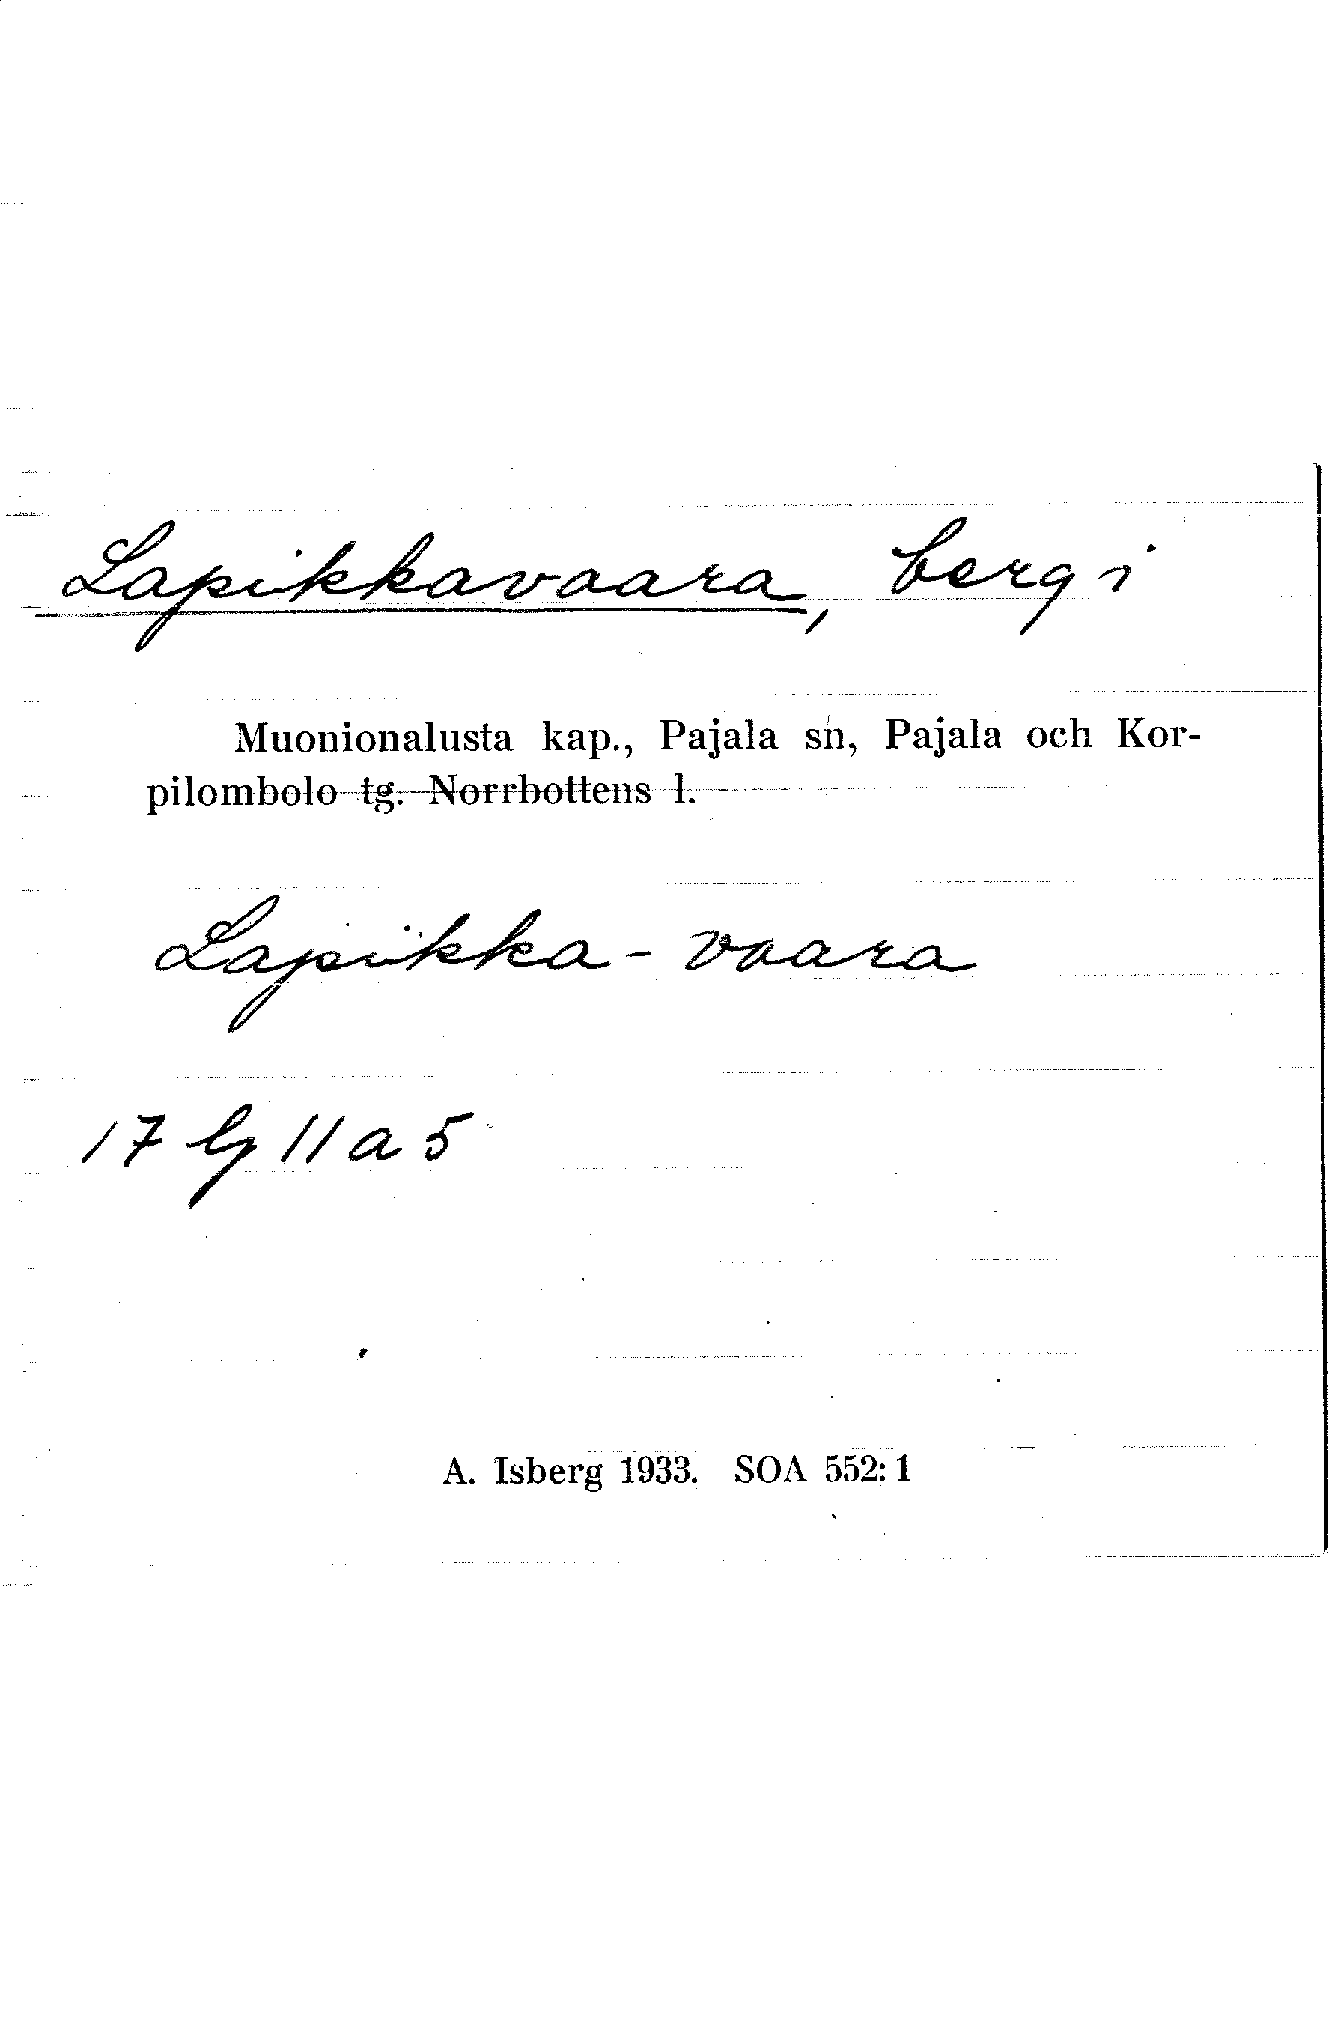 Lapikkavaara, berg i
Muonionalusta kap., Pajala sn, Pajala och Kor-
pilombolo tg. Norrbottens l.
Lapikka-vaara
17 lj 11 a 5
A. Isberg 1933. SOA 552:1